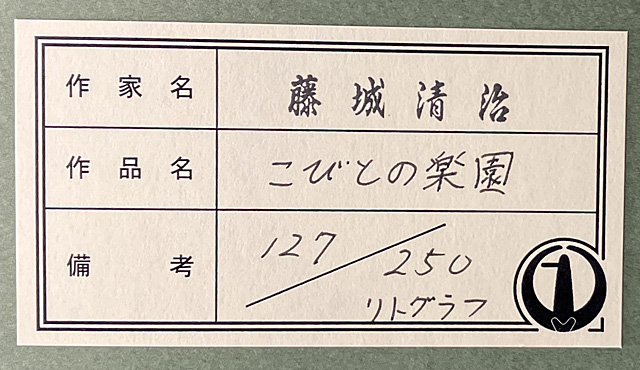 作家名 藤城清治
作品名 こびとの楽園
備考 127/250
リトグラフ